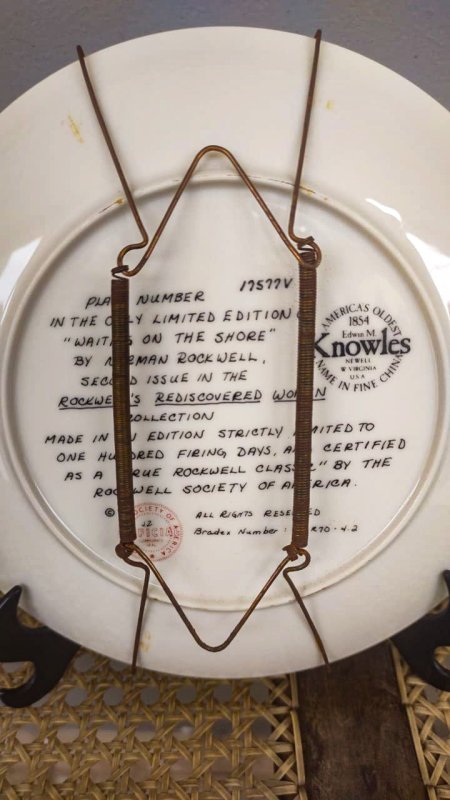 PLA NUMBER 17577V
IN THE ONLY LIMITED EDITION
"WAITING ON THE SHORE"
BY NORMAN ROCKWELL,
SECOND ISSUE IN THE
ROCKWELL'S REDISCOVERED WOMEN
COLLECTION
MADE IN AN EDITION STRICTLY LIMITED TO
ONE HUNDRED FIRING DAYS, AND CERTIFIED
AS A "TRUE ROCKWELL CLASSIC" BY THE
ROCKWELL SOCIETY OF AMERICA.
© ALL RIGHTS RESERVED
Bradex Number: R70-4.2
AMERICA'S OLDEST
1854
Edwin M.
Knowles
NEWELL
W VIRGINIA
U.S.A
NAME IN FINE CHINA
SOCIETY OF AMERICA